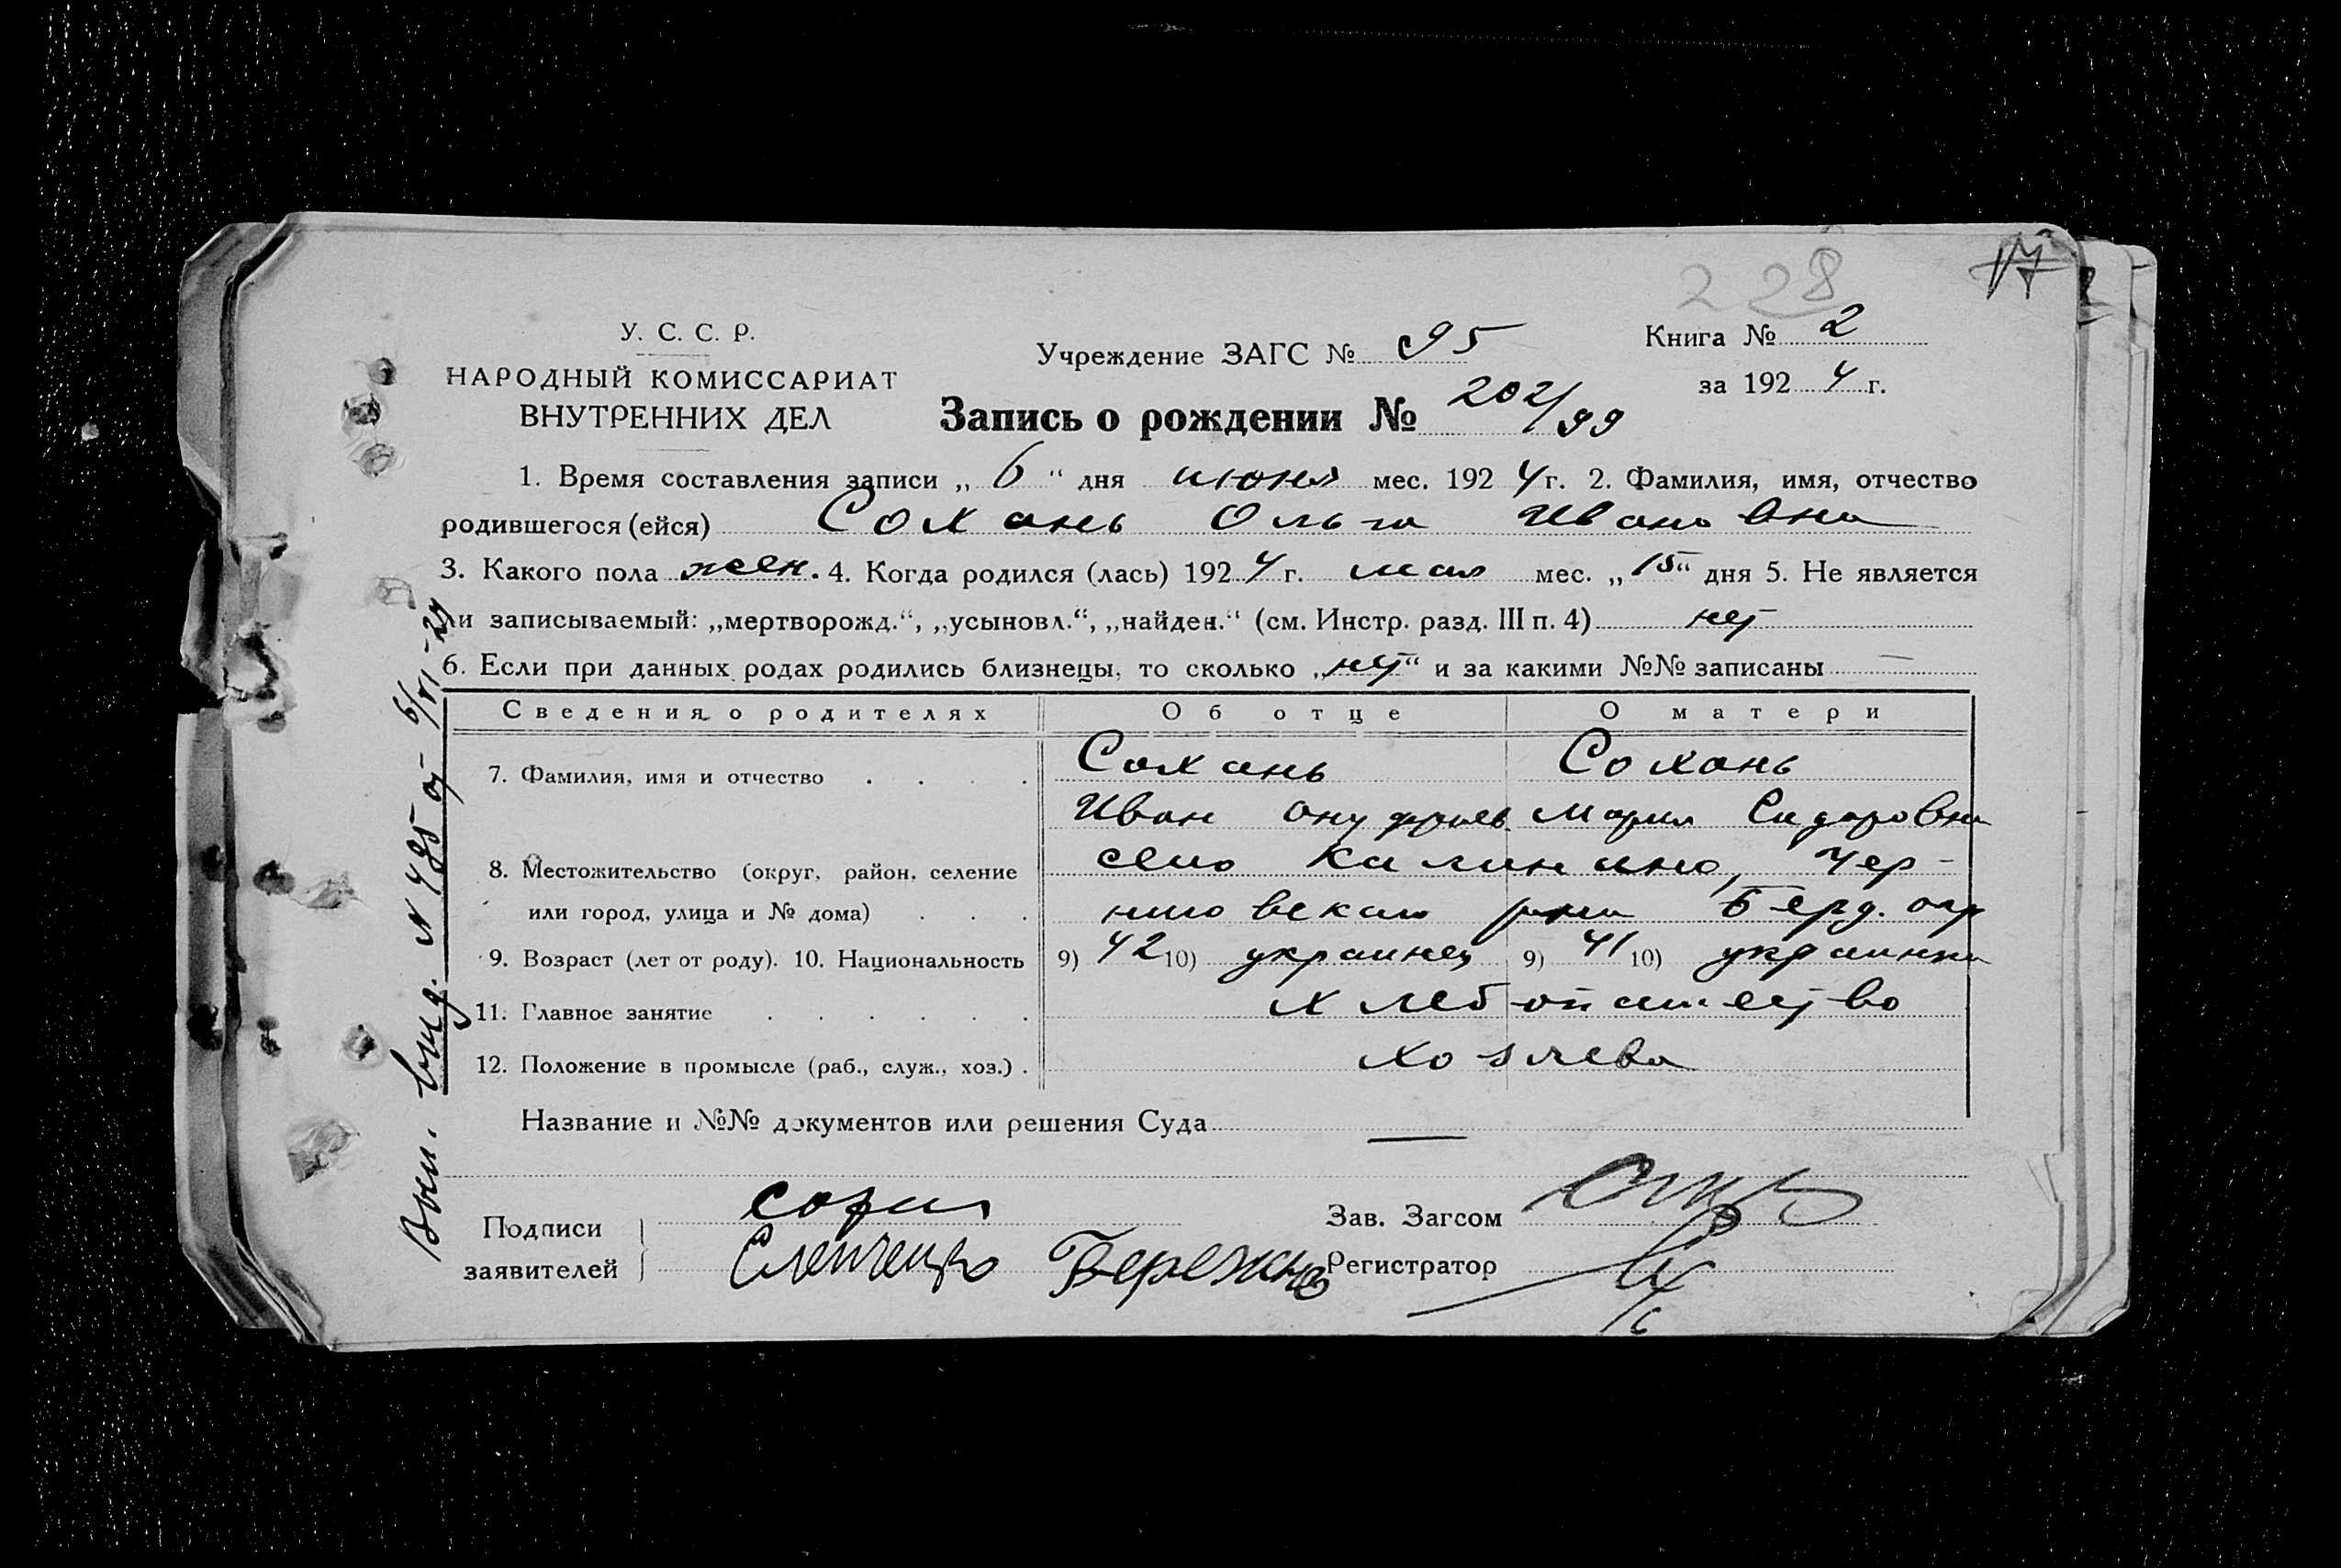 228
17
У. С. С. Р.
НАРОДНЫЙ КОМИССАРИАТ
ВНУТРЕННИХ ДЕЛ
Учреждение ЗАГС № 95
Книга № 2
за 1924 г.
Запись о рождении № 202/99
1. Время составления записи „6“ дня июня мес. 1924 г. 2. Фамилия, имя, отчество
родившегося (ейся) Сохань Ольга Ивановна
3. Какого пола жен. 4. Когда родился (лась) 1924 г. мая мес. „15“ дня 5. Не является
ли записываемый: „мертворожд.“, „усыновл.“, „найден.“ (см. Инстр. разд. III п. 4) нет
6. Если при данных родах родились близнецы, то сколько „нет“ и за какими №№ записаны —
Сведения о родителях Об отце О матери
7. Фамилия, имя и отчество . . . . Сохань Сохань
Иван Онуфриев Мария Сидоровна
8. Местожительство (округ, район, селение село Калинино, Чер-
или город, улица и № дома) . . . ниговского р-на Берд. окр
9. Возраст (лет от роду). 10. Национальность 9) 42 10) украинец 9) 41 10) украинка
11. Главное занятие . . . . . . хлебопашество
12. Положение в промысле (раб., служ., хоз.) . хозяева
Название и №№ документов или решения Суда —
Подписи
заявителей
София
Слепченко Бережн
Зав. Загсом
Регистратор
№ 485 от 6/VI-24